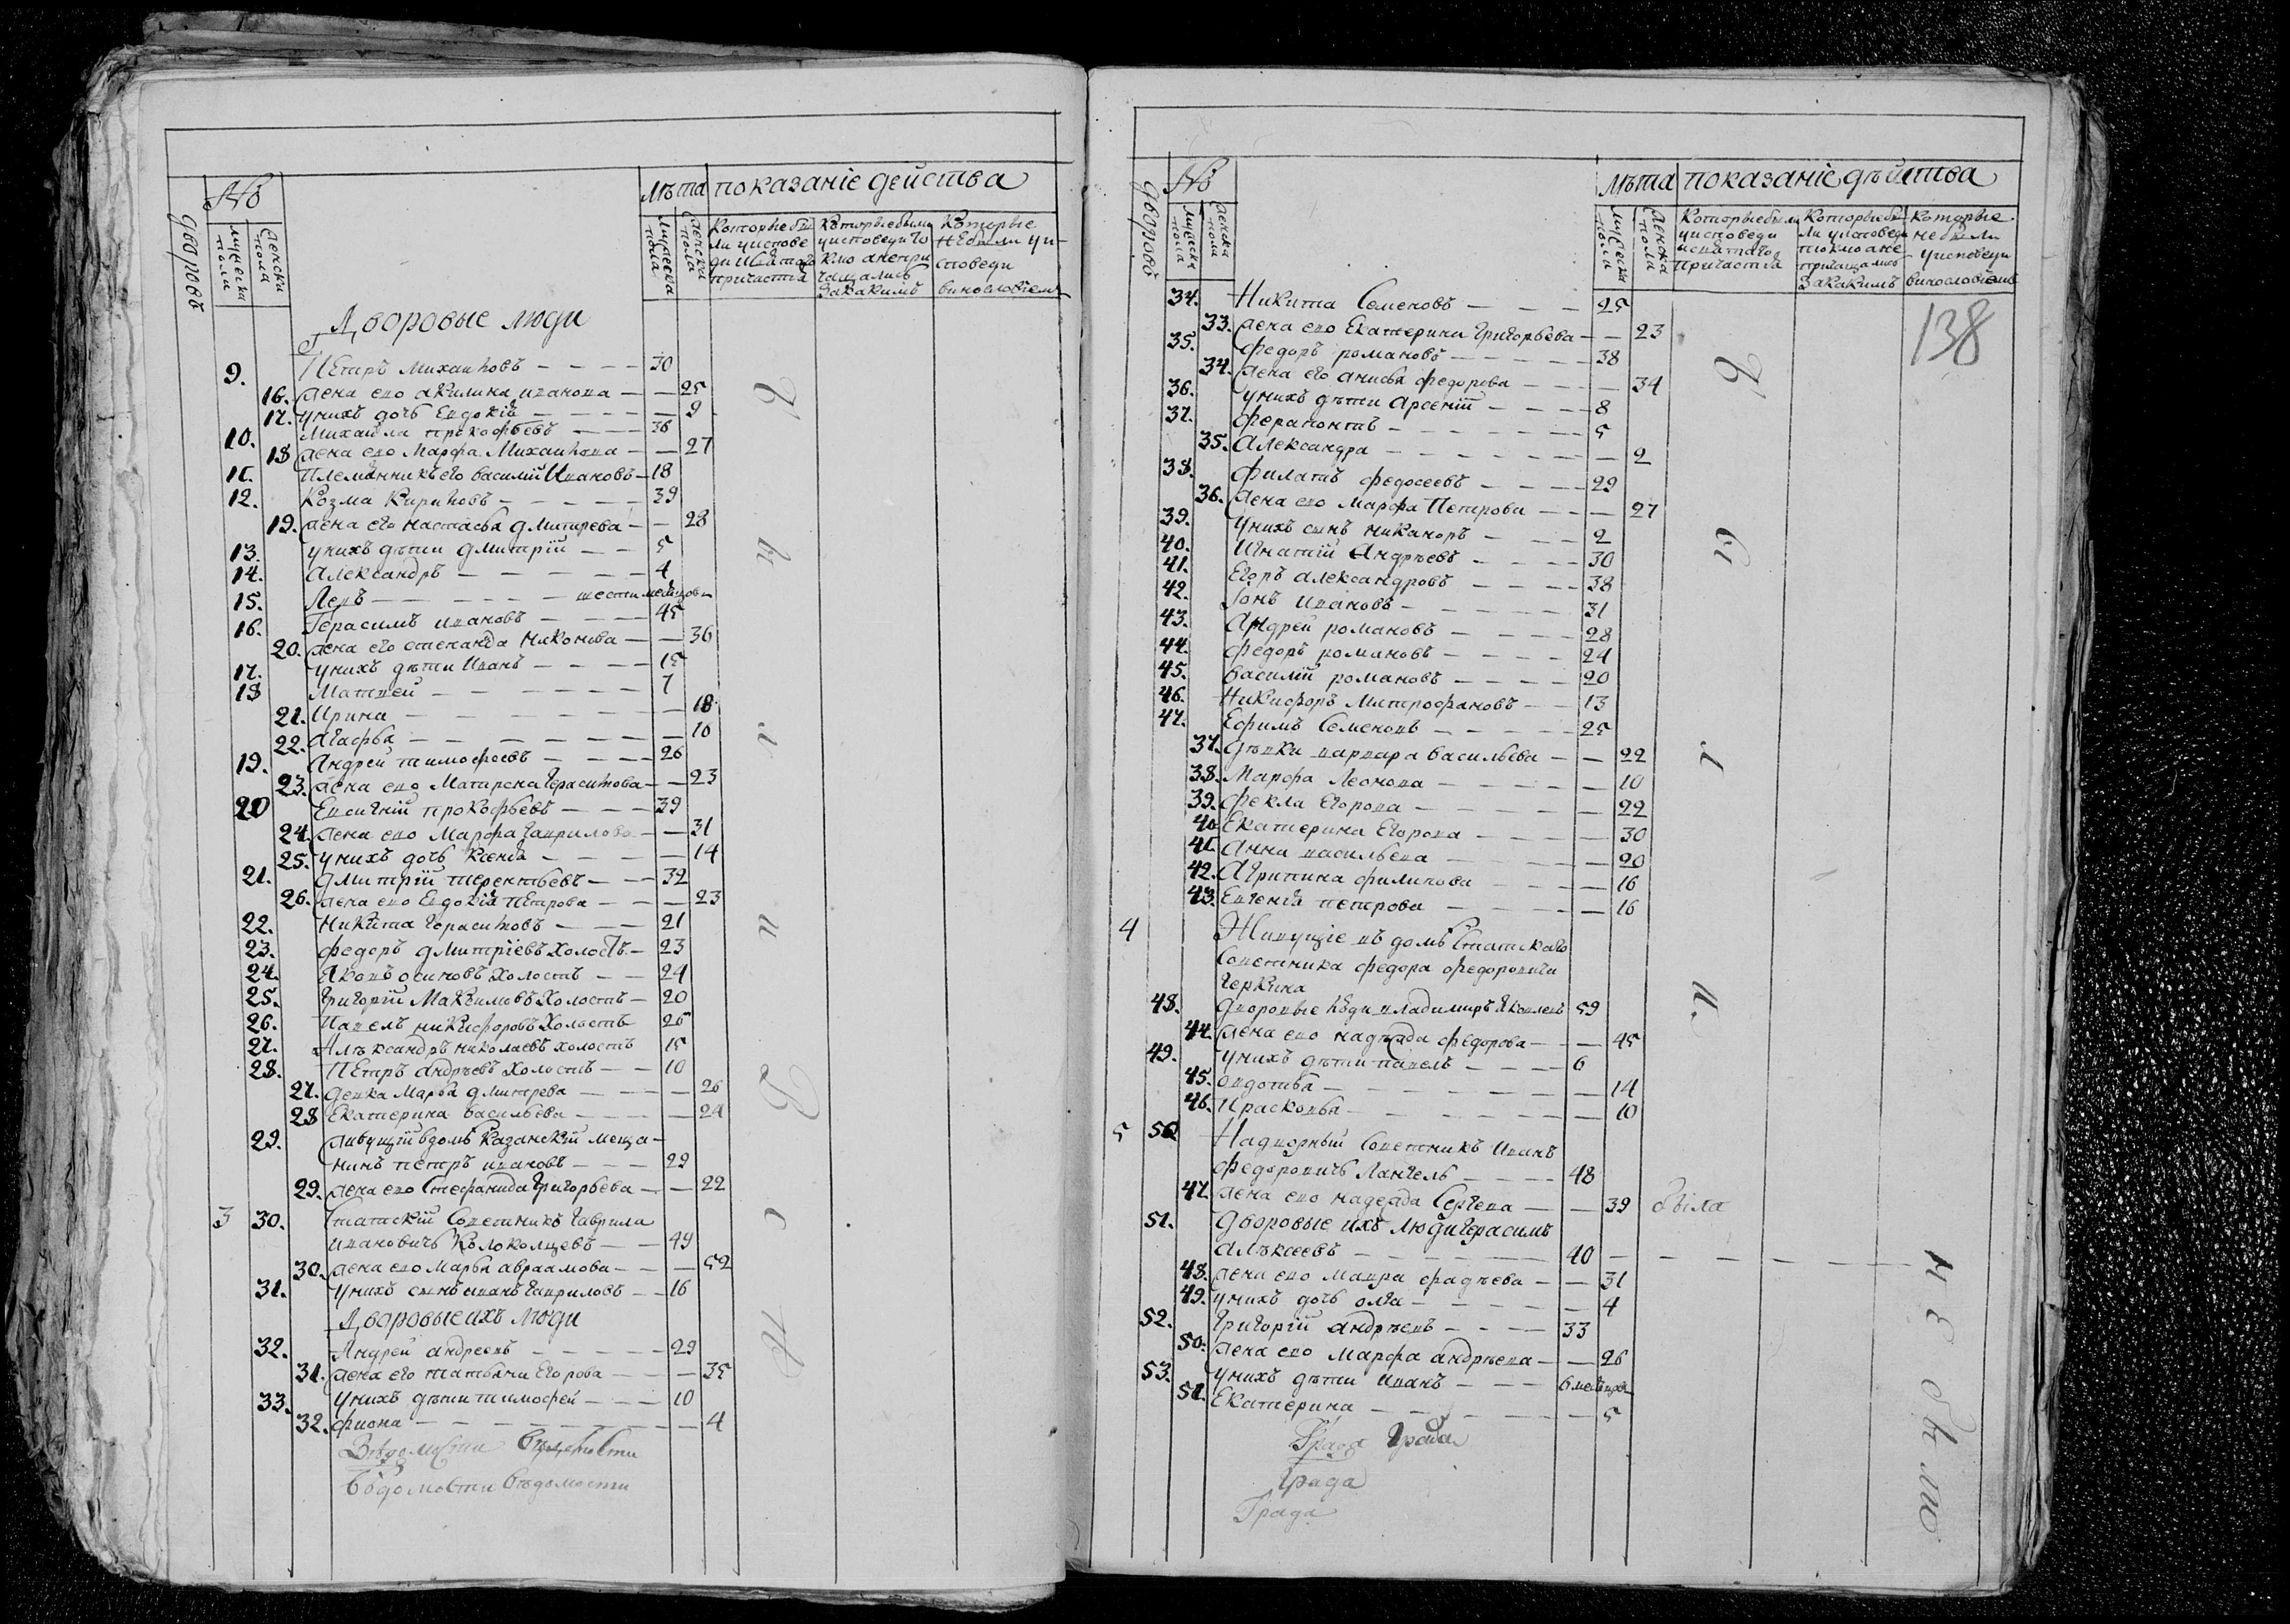 №
лѣта показаніе действа
дворовъ
мужеска пола
женска пола
мужеска пола
женска пола
Которые бы
ли уисповеди
и святаго
причастія
Которые были
уисповеди то
кмо непри
чащались
Закакимъ
Которые
Небыли уи-
споведи
винословіем
Дворовые люди
9. Петръ Михаиловъ — 30
16. жена ево акилина иванова — 25
17. унихъ дочь Евдокія — 9
10. Михайла прокофьевъ — 36
18 жена ево Марфа Михаилова — 27
11. Племянникъ его василий Ивановъ — 18
12. Козма Кириловъ — 39
19. жена его настасья дмитрева — 28
13. унихъ дѣти дмитрій — 5
14. александръ — 4
15. Левъ — шести месяцовъ
16. Герасимъ ивановъ — 45
20. жена его степанида никонова — 36
17. унихъ дѣти Иванъ — 15
18 Матвей — 7
21. Ирина — 18
22. агафья — 10
19. Андрей тимофеевъ — 26
23. жена ево Матрена Герасимова — 23
20 Евсигній прокофьевъ — 39
24. жена ево Марфа гаврилова — 31
25. унихъ дочь Ксенія — 14
21. дмитрій терентьевъ — 32
26. жена ево Евдокія Петрова — 23
22. Никита Герасимовъ — 21
23. федоръ дмитріевъ холостъ — 23
24. яковъ осиповъ холостъ — 24
25. Григорій Максимовъ Холостъ — 20
26. Павелъ никифоровъ Холостъ 26
27. Алѣксандръ николаевъ холостъ 15
28. Петръ андрѣевъ Холостъ — 10
27. девка Марья дмитрева — 26
28 Екатерина васильева — 24
29. живущій вдомѣ Казанскій меща-
нинъ петръ ивановъ — 29
29. жена ево Стефанида Григорьева — 22
3 30. Статскій Советникъ Гаврила
Ивановичъ Колоколцевъ — 49
30. жена ево Марья авраамова — 52
31. унихъ сынъ иванъ Гавриловъ — 16
Дворовые ихъ люди
32. Андрей андреевъ — 29
31. жена его татьяна Егорова — 35
33. унихъ дѣти тимофей — 10
32. фиона — 4
Вѣдомости
Вѣдомости Вѣдомости
№
лѣта показаніе дѣйства
дворовъ
мужеска пола
женска пола
мужеска пола
женска пола
Которые были
уисповеди
исвятаго
причастія
Которые бы
ли уисповеди
токмо не
причащались
Закакимъ
Которые
небыли
уисповеди
винословіемъ
138
34. Никита Семеновъ — 25
33. жена ево Екатерина Григорьева — 23
35. федоръ романовъ — 38
34. жена его анисья федорова — 34
36. унихъ дѣти Арсеній — 8
37. ферапонтъ — 5
35. Александра — 2
38. филатъ федосеевъ — 29
36. жена ево Марфа Петрова — 27
39. унихъ сынъ никаноръ — 2
40. Игнатій Андрѣевъ — 30
41. Егоръ александровъ — 38
42. Іонъ ивановъ — 31
43. Андрей романовъ — 28
44. федоръ романовъ — 24
45. василій романовъ — 20
46. Никифоръ Митрофановъ — 13
47. Ефимъ Семеновъ — 25
37. дѣвки варвара васильева — 22
38. Марфа Леонова — 10
39. фекла Егорова — 22
40 Екатерина Егорова — 30
41. Анна васильева — 20
42. Агрипина филипова — 16
43. Евгенія петрова — 16
4 Живущіе въ домѣ Статскаго
Советника федора федоровича
Черкина
48. дворовые люди владимиръ яковлевъ 59
44. жена ево надежда федорова — 45
49. унихъ дѣти павелъ — 6
45. авдотья — 14
46. Прасковья — 10
5 50 Надворный Советникъ Иванъ
федоровичъ Лангель — 48
47 жена ево надежда Сергева — 39 была
51. дворовые ихъ люди Герасимъ
алѣксеевъ — 40
48. жена ево мавра фадѣева — 31
49. унихъ дочь олга — 4
52. Григорій андрѣевъ — 33
50. жена ево марфа андрѣева — 26
53. унихъ дѣти иванъ — 6 месяцовъ
51. Екатерина — 5
Града Града
Града
Града